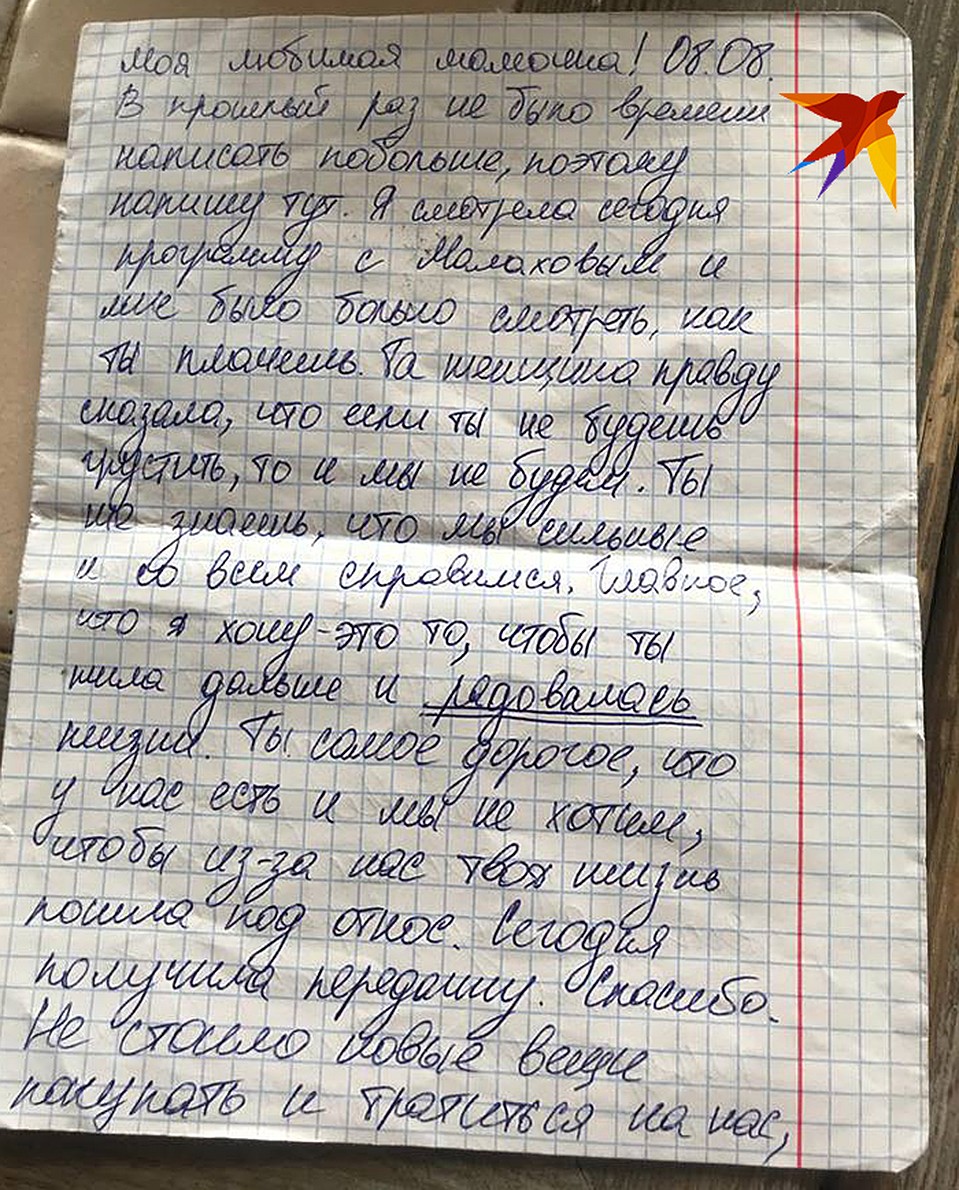 Моя любимая мамочка! 08.08.
В прошлый раз не было времени
написать побольше, поэтому
напишу тут. Я смотрела сегодня
программу с Малаховым и
мне было больно смотреть, как
ты плачешь. Та женщина правду
сказала, что если ты не будешь
грустить, то и мы не будем. Ты
же знаешь, что мы сильные
и со всем справимся. Главное,
что я хочу - это то, чтобы ты
жила дальше и радовалась
жизни. Ты самое дорогое, что
у нас есть и мы не хотим,
чтобы из-за нас твоя жизнь
пошла под откос. Сегодня
получила передачку. Спасибо.
Не стоило новые вещи
покупать и тратиться на нас,